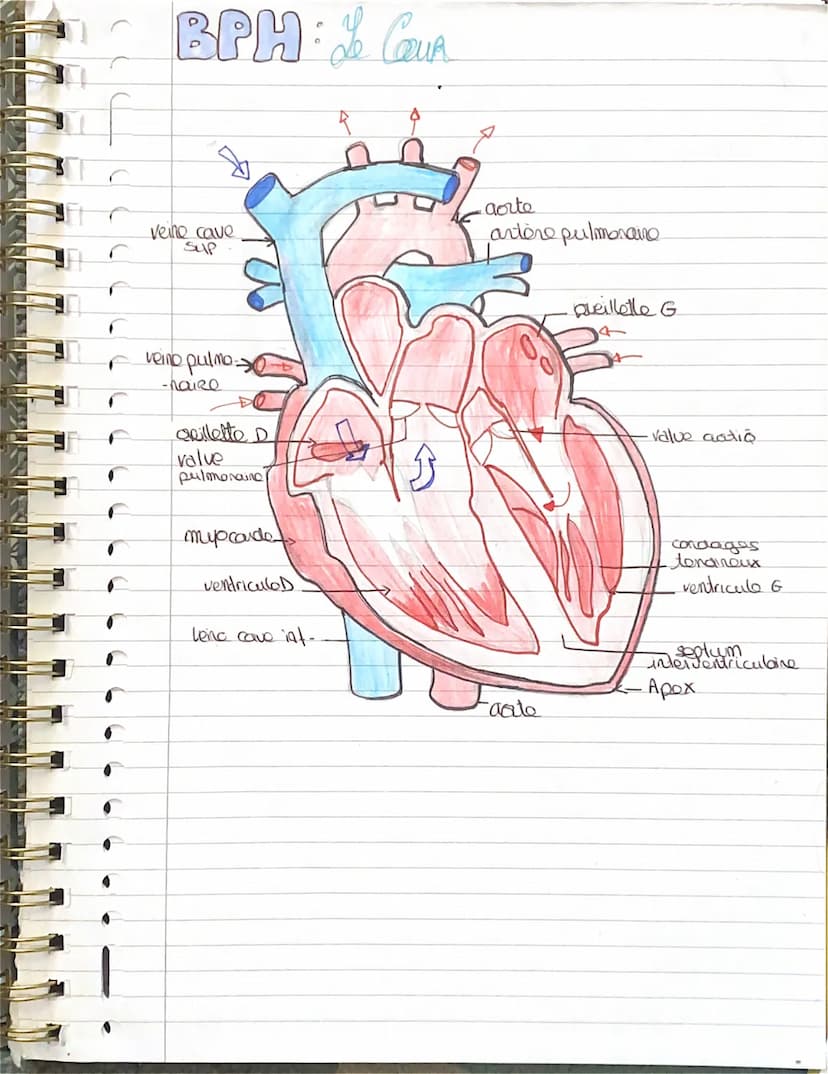 BPH : Le Cœur
aorte
veine cave
sup.
artère pulmonaire
oreillette G
veine pulmo-
-naire
oreillette D
valve aortiq
valve
pulmonaire
myocarde
cordages
tendineux
ventricule D
ventricule G
veine cave inf.
septum
interventriculaire
Apex
aorte